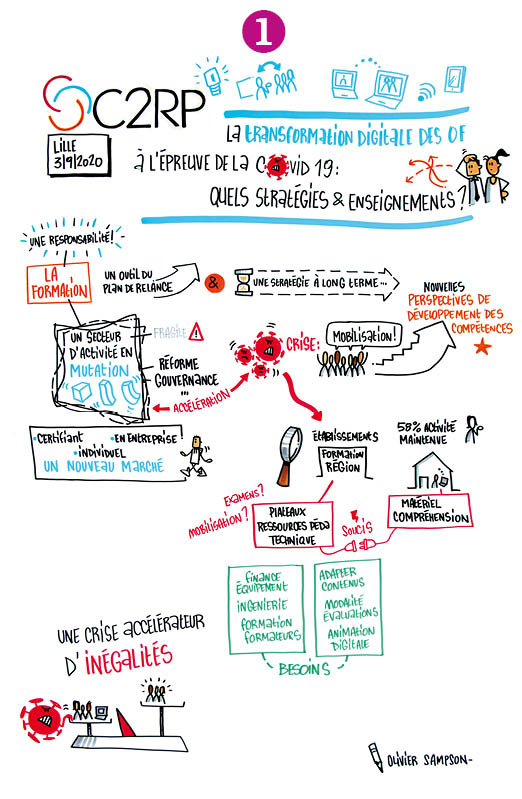 1
C2RP
LILLE
3/9/2020
La TRANSFORMATION DIGITALE DES OF
À L'ÉPREUVE DE LA COVID 19:
QUELS STRATÉGIES & ENSEIGNEMENTS ?
UNE RESPONSABILITÉ!
LA
FORMATION
UN OUTIL DU
PLAN DE RELANCE
&
UNE STRATÉGIE À LONG TERME...
NOUVELLES
PERSPECTIVES DE
DÉVELOPPEMENT DES
COMPÉTENCES
UN SECTEUR
D'ACTIVITÉ EN
MUTATION
FRAGILE
RÉFORME
GOUVERNANCE
...
ACCÉLÉRATION
CRISE:
MOBILISATION!
•CERTIFIANT
•EN ENTREPRISE!
•INDIVIDUEL
UN NOUVEAU MARCHÉ
ÉTABLISSEMENTS
FORMATION
RÉGION
58% ACTIVITÉ
MAINTENUE
EXAMENS?
MOBILISATION?
PLATEAUX
RESSOURCES PÉDA
TECHNIQUE
SOUCIS
MATÉRIEL
COMPRÉHENSION
FINANCE
ÉQUIPEMENT
INGENIERIE
FORMATION
FORMATEURS
ADAPTER
CONTENUS
MODALITÉ
ÉVALUATIONS
ANIMATION
DIGITALE
BESOINS
UNE CRISE ACCÉLÉRATEUR
D'INÉGALITÉS
OLIVIER SAMPSON-